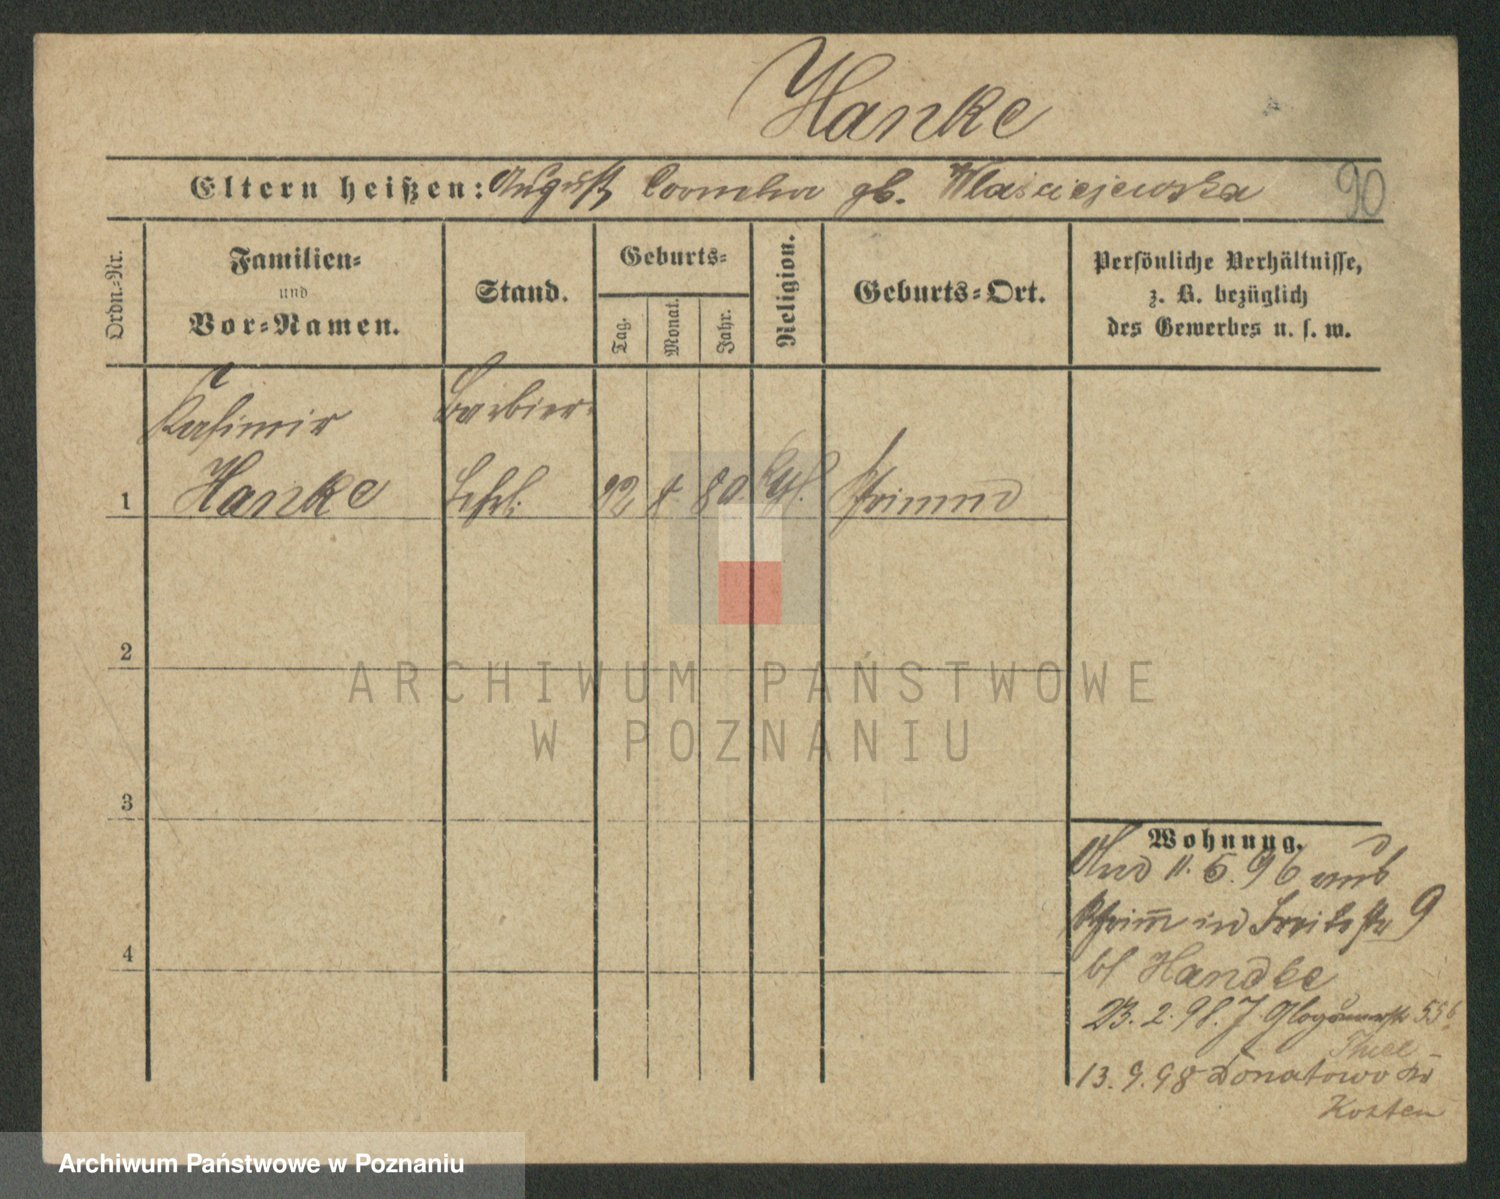 Hanke
Eltern heißen: August Cornelia gb. Wlaściejewska 90
Ordn.-Nr.
Familien-
und
Vor-Namen.
Stand.
Geburts-
Tag.
Monat.
Jahr.
Religion.
Geburts-Ort.
Persönliche Verhältnisse,
z. B. bezüglich
des Gewerbes u. s. w.
Kasimir Barbier
1 Hanke Lehrl. 22 8 80 Kth. Schrimm
2
3
4
Wohnung.
11. 5. 96 aus
Schrimm in 9
bf Handke
23. 2. 98. J. Glogauerstr 55
Thiel
13. 9. 98 Donatowo Kr
Kosten
ARCHIWUM PAŃSTWOWE
W POZNANIU
Archiwum Państwowe w Poznaniu